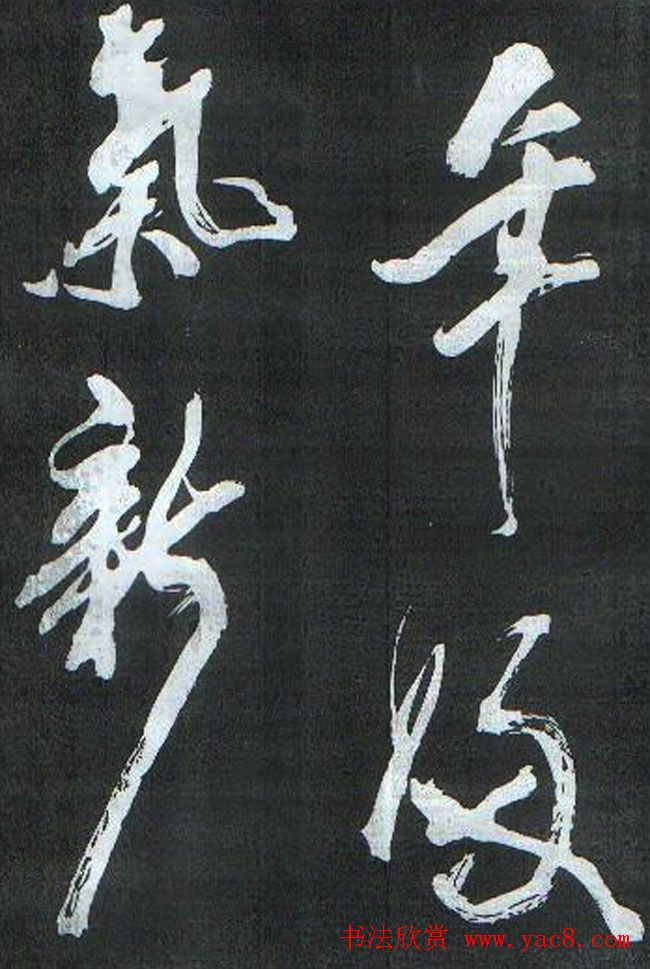 年
氣新
书法欣赏 www.yac8.com